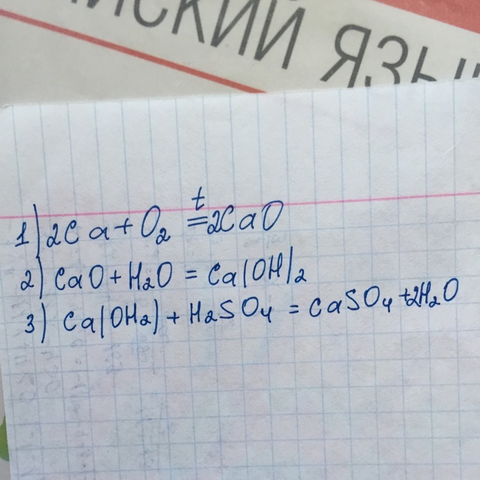 ИЙСКИЙ ЯЗЫ
t
1) 2Ca + O₂ = 2CaO
2) CaO + H₂O = Ca(OH)₂
3) Ca(OH₂) + H₂SO₄ = CaSO₄ + 2H₂O